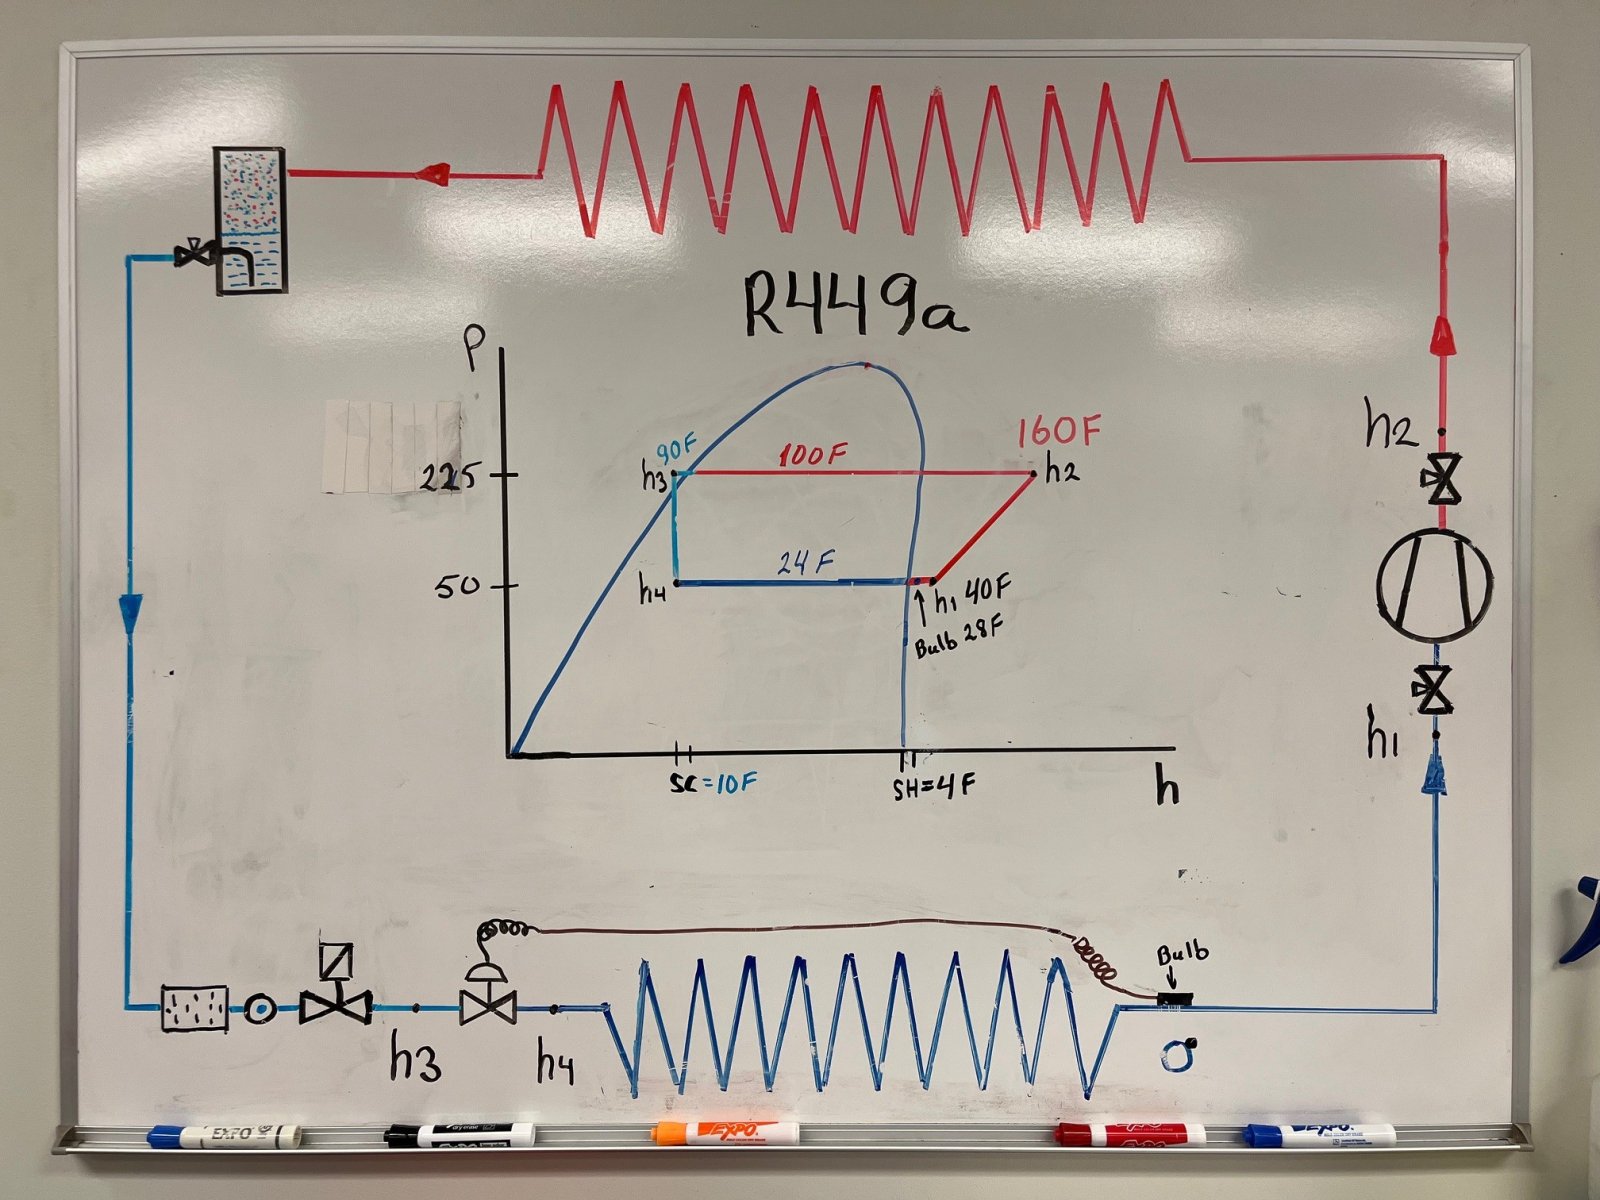 R449a
P
225
50
90F
h3
100F
160F
h2
24F
h4
h1 40F
Bulb 28F
SC=10F
SH=4F
h
h2
h1
Bulb
h3
h4
EXPO
dry erase
EXPO
EXPO.
EXPO
EXPO.